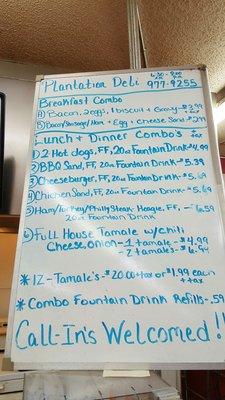 Plantation Deli 6:30-8:00
977-9255
Breakfast Combo
A) Bacon, 2eggs, 1 biscuit + Gravy-$3.99 + tax
B) Bacon/Sausage/Ham + Egg + Cheese Sand.-$2.99
Lunch + Dinner Combo's + tax
1) 2 Hot dogs, FF, 20oz Fountain Drink-$4.99
2) BBQ Sand, FF, 20oz Fountain Drink-$5.39
3) Cheeseburger, FF, 20oz Fountain Drink-$5.69
4) Chicken Sand, FF, 20oz Fountain Drink-$5.69
5) Ham/Turkey/Philly Steak Hoagie, FF, -$6.59
20oz Fountain Drink
6) Full House Tamale w/chili
Cheese, Onion-1 tamale-$4.99
-2 tamales-$6.94
* 12-Tamale's-$20.00+tax or $1.99 each
+tax
* Combo Fountain Drink Refills-.59
Call-In's Welcomed!!